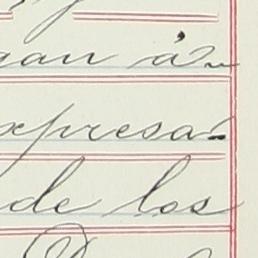 gan á
xpresa-
de los